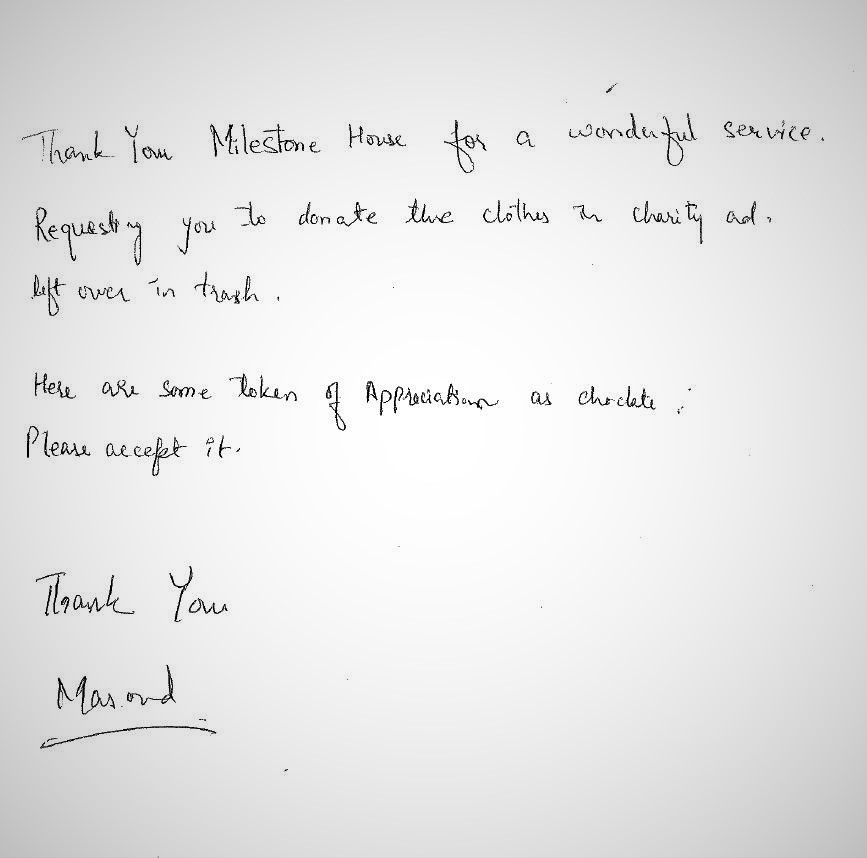 Thank You Milestone House for a wonderful service.
Requesting you to donate the clothes in charity ad.
left over in trash.
Here are some token of Appreciation as choclate.
Please accept it.
Thank You
Masood